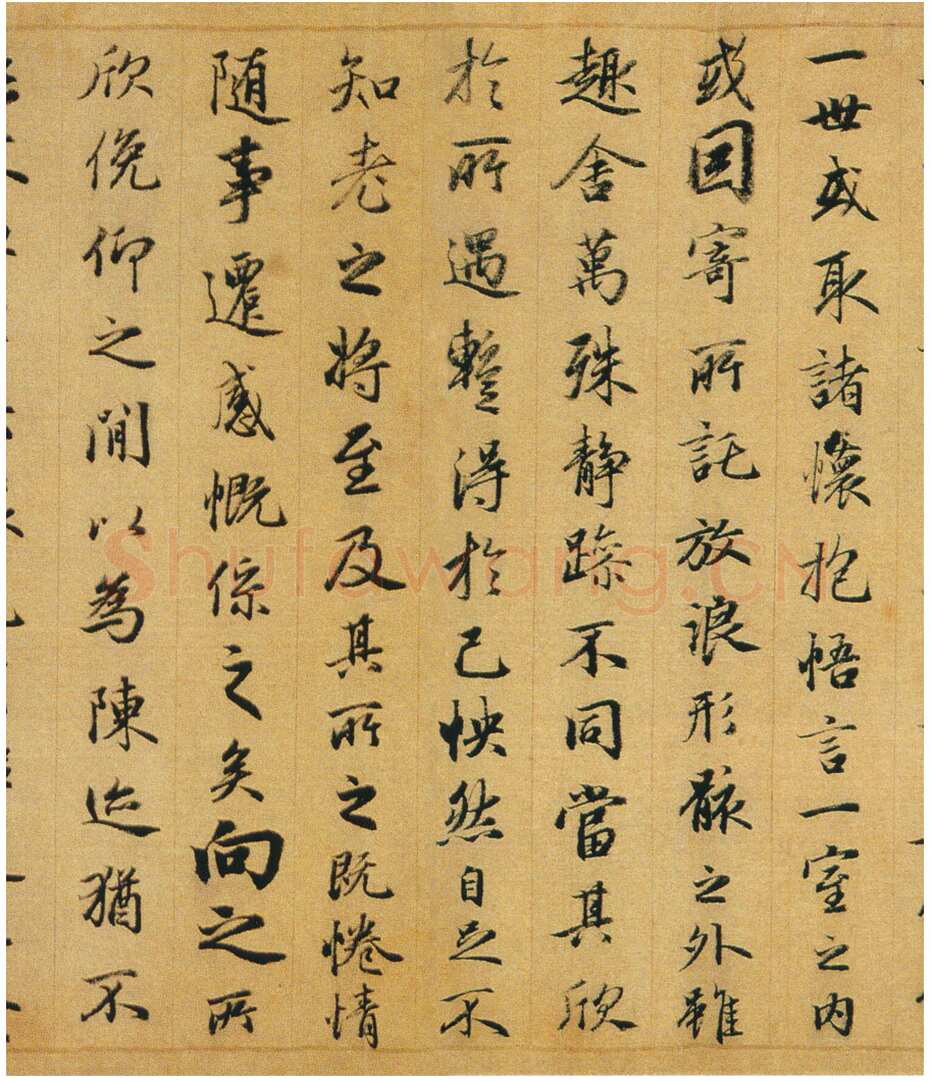 一世或取諸懷抱悟言一室之内
或因寄所託放浪形骸之外雖
趣舍萬殊靜躁不同當其欣
於所遇暫得於己怏然自足不
知老之將至及其所之既惓情
随事遷感慨係之矣向之所
欣俛仰之閒以為陳迹猶不
Shufawang.CN